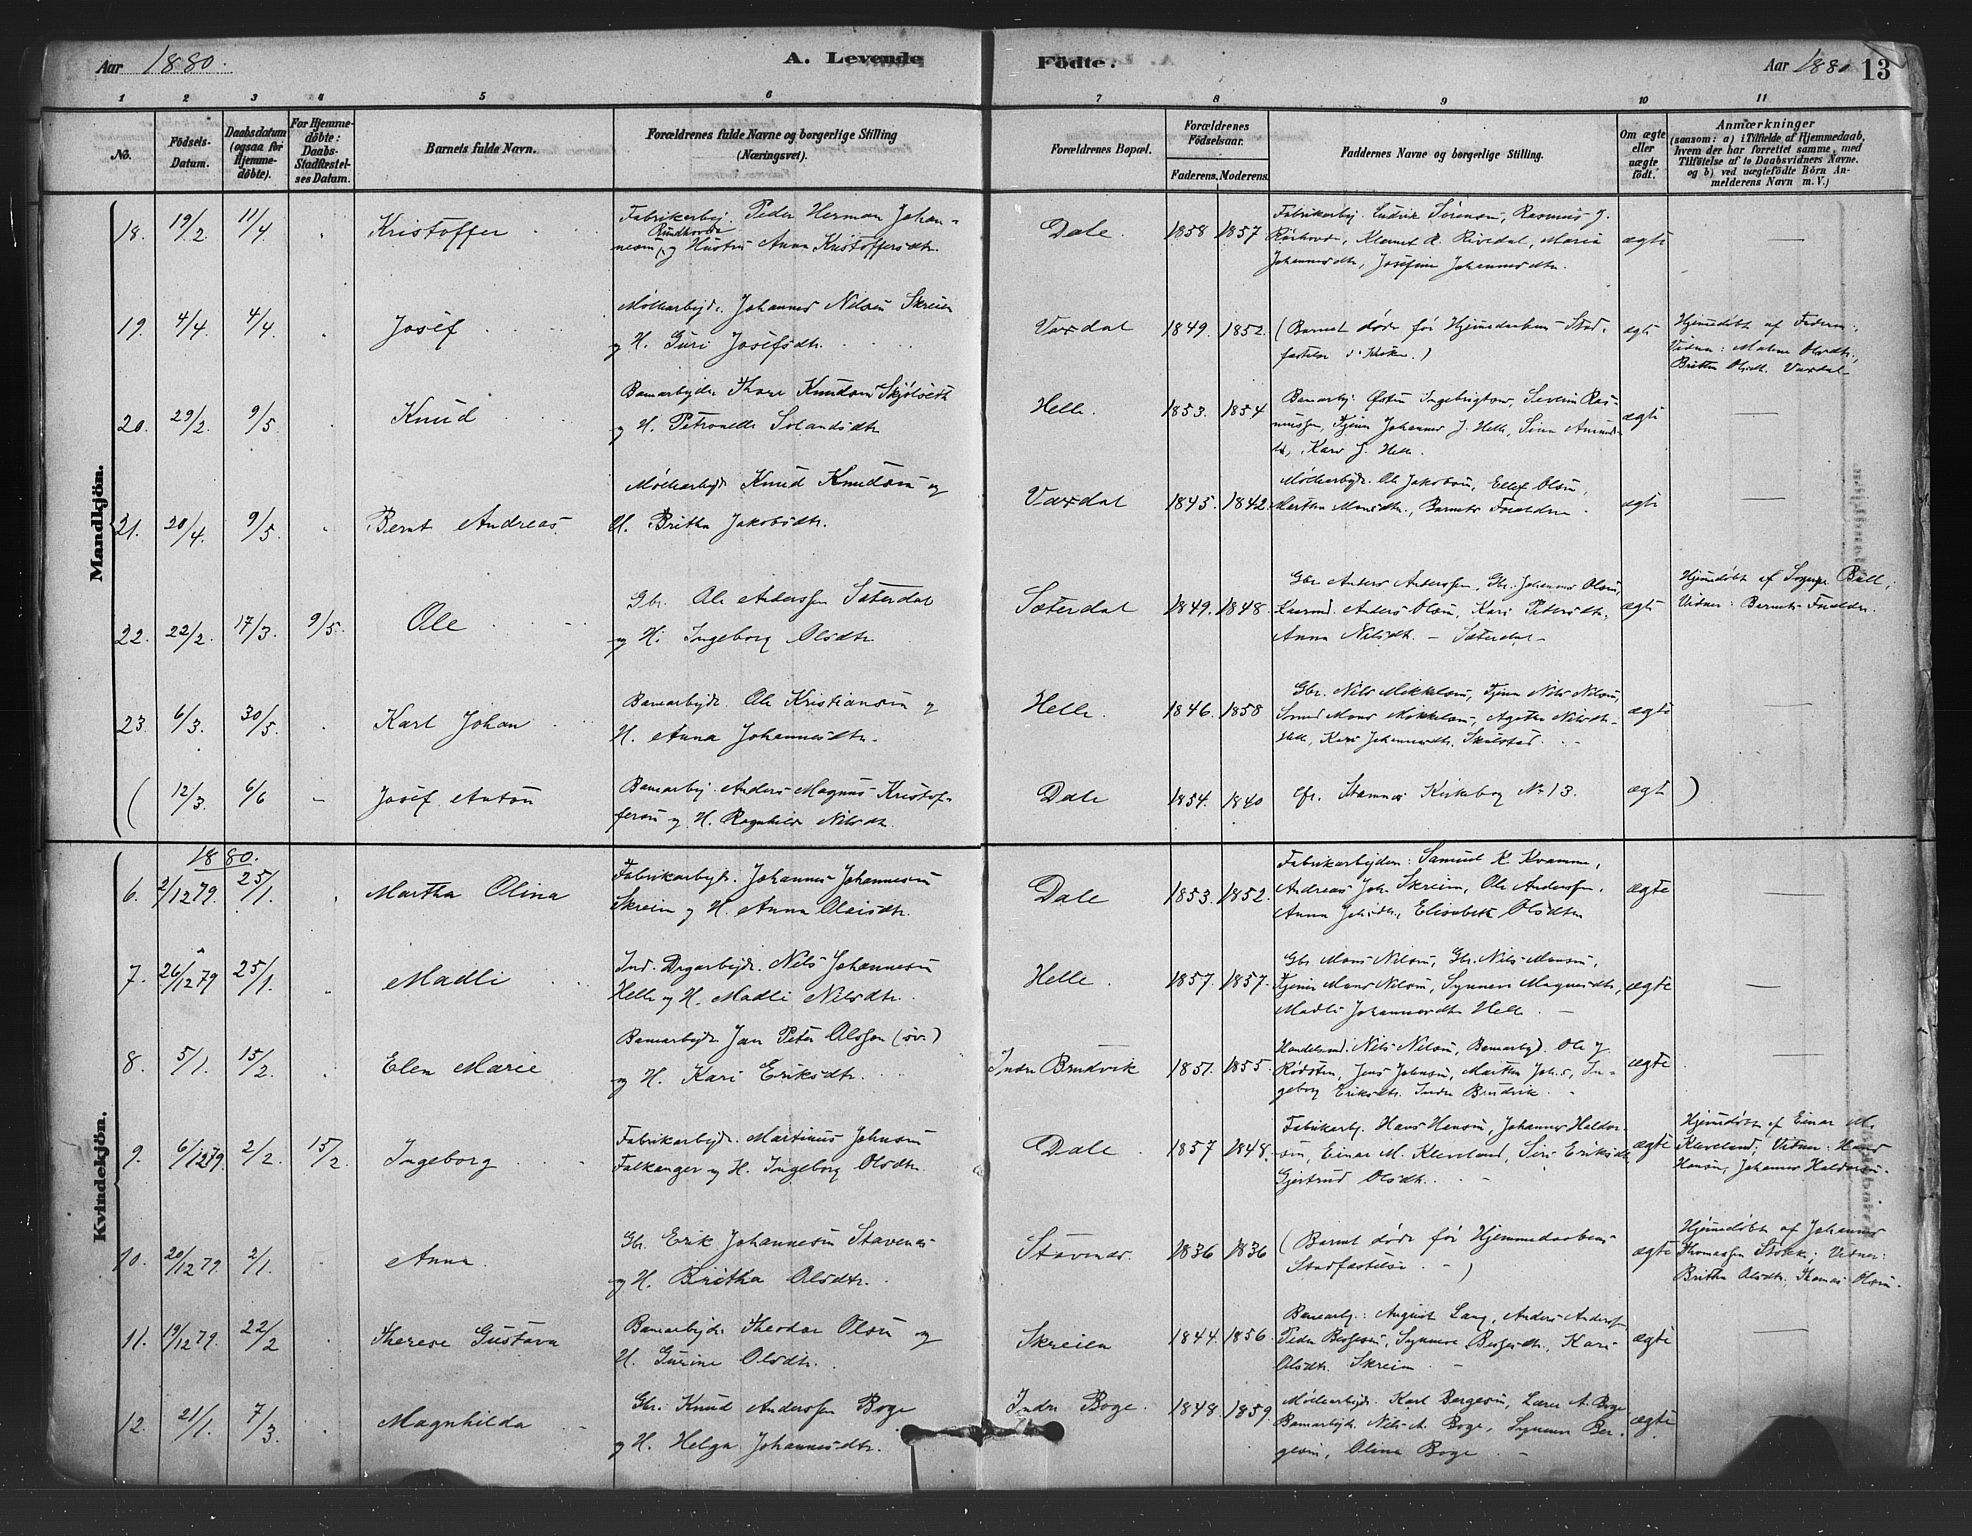 Aar 1880. A. Levende Födte. Aar 1880 13
1 2 3 4 5 6 7 8 9 10 11
No.
Födsels-Datum.
Daabsdatum (ogsaa for Hjemme-döbte).
For Hjemme-döbte: Daabs-Stadfæstel-ses Datum.
Barnets fulde Navn.
Forældrenes fulde Navne og borgerlige Stilling (Næringsvei).
Forældrenes Bopæl.
Forældrenes Födselsaar.
Faderens. Moderens.
Faddernes Navne og borgerlige Stilling.
Om ægte eller uægte födt.
Anmærkninger
(saasom: a) i Tilfælde af Hjemmedaab, hvem der har forrettet samme, med Tilföielse af to Daabsvidners Navne. og b) ved uægtefödte Börn Anmelderens Navn m. V.)
Mandkjön.
18. 19/2. 11/4 Kristoffer
Fabrikarbej. Peder Herman Johan-
nesen og Hustru Anna Kristoffersdtr.
Dale. 1858 1857
Fabrikarbej. Ludvik Sørensen, Rasmus J.
Johannesdtr., Josefine Johannesdtr.
ægte
19. 4/4. 4/4. Josef
Møllearbejdr. Johannes Nilsen Skreien
og H. Guri Josefsdtr.
Vaxdal 1849. 1852.
(Barnet døde før Hjemmedaabens Stad-
fæstelse i Kirken.)
ægte
Hjemmdøbt af Faderen.
Vidner: Malene Olsdtr.,
Britha Olsdtr. Vaxdal
20. 29/2. 9/5. Knud
Banearbejdr. Thore Knudsen Skjølseth
og H. Petronelle
Helle. 1853. 1854
Banearbj. Østen Ingebrigtsen, Severin Ras-
mussen, Tjener Johannes J. Helle, Sina
Kari J. Helle.
ægte
21. 20/4. 9/5. Bernt Andreas
Møllearbejdr. Knud Knudsen og
H. Britha Jakobsdtr.
Vaxdal 1845. 1842
Møllearbejdr. Ole Jakobsen, Ellef Olsen,
Martha Monsdtr., Barnets Forældre.
ægte
22. 22/2. 17/3. 9/5. Ole
Gbr. Ole Anderssen Sæterdal
og H. Ingeborg Olsdtr.
Sæterdal 1849. 1848.
Gbr. Anders Anderssen, Gbr. Johannes Olsen,
Anders Olsen, Kari Pedersdtr.,
Anna Nilsdtr. – Sæterdal –
ægte
Hjemmdøbt af Sognepr. Bull,
Vidner: Barnets Forældre.
23. 6/3. 30/5. Karl Johan
Banearbejdr. Ole Kristiansen og
H. Anna Johannesdtr.
Helle. 1846. 1858
Gbr. Nils Mikkelsen, Tjener Nils Nilsen,
Smed Mons Mikkelsen, Agathe Nilsdtr.
Helle, Kari Johannesdtr. Skulstad.
ægte
( 12/3. 6/6 – Josef Anton
Banearbej. Anders Magnus Kristof-
fersen og H. Ragnhilde Nilsdtr.
Dale 1854. 1840
cfr. Stamnes Kirkebog No 13.
ægte )
Kvindekjön.
1880.
6. 2/12 79. 25/1. Martha Olina
Fabrikarbejdr. Johannes Johannesen
Skreien og H. Anna Olaisdtr.
Dale 1853. 1852.
Fabrikarbejdere: Samuel K. Kvamme,
Andreas Joh. Skreien, Ole Anderssen,
Anna Johsdtr., Elisabeth Olsdtr.
ægte
7. 26/12 79 25/1. Madli
Ind. Dagarbejdr. Nils Johannesen
Helle og H. Madli Nilsdtr.
Helle. 1857. 1857.
Gbr. Mons Nilsen, Gbr. Nils Monsen,
Tjener Mons Nilsen, Synneve Magnesdtr.,
Madli Johannesdtr. Helle. –
ægte
8. 5/1. 15/2. Elen Marie
Banearbejdr. Jan Peter Olssen (sv.)
og H. Kari Eriksdtr.
Indre Brudvik 1851. 1855.
Handelsmd. Nils Nilsen, Banearbejd. Ole
Rødsten, Jens Johnsen, Martha Johs., In-
geborg Eriksdtr. Indre Brudvik.
ægte
9. 6/12 79. 2/2. 15/2. Ingeborg
Fabrikarbejdr. Martinus Johnsen
Falkanger og H. Ingeborg Olsdtr.
Dale. 1857 1848.
Fabrikarbj. Hans Hansen, Johannes Haldor-
sen, Einar M. Kleveland, Siri Eriksdtr.,
Gjertrud Olsdtr.
ægte
Hjemmdøbt af Einar M.
Kleveland, Vidner: Hans
Hansen, Johannes Haldorsen.
10. 20/12 79. 2/1. Anna.
Gbr. Erik Johannesen Stavenes
og H. Britha Olsdtr.
Stavenes. 1836 1836
(Barnet døde før Hjemmedaabens
Stadfæstelse. –)
ægte
Hjemmdøbt af Johannes
Thomassen Stokke; Vidner:
Britha Olsdtr., Thomas Olsen.
11. 19/12 79. 22/2 Therese Gustava
Banearbejdr. Theodor Olsen og
H. Gurine Olsdtr.
Skreien 1844. 1856.
Banearbj.: August Lang, Anders Anderssen,
Peder Bergesen, Synneve Bergesdtr., Kari
Olsdtr. Skreien. –
ægte
12. 21/1. 7/3. Magnhilda
Gbr. Knud Anderssen Boge
og H. Helga Johannesdtr.
Indre Boge. 1848. 1859.
Møllearbejdr. Karl Bergesen, Lærer A. Boge
Banearbejdr. Nils A. Boge, Synneve Ber-
gesen, Olina Boge. –
ægte.